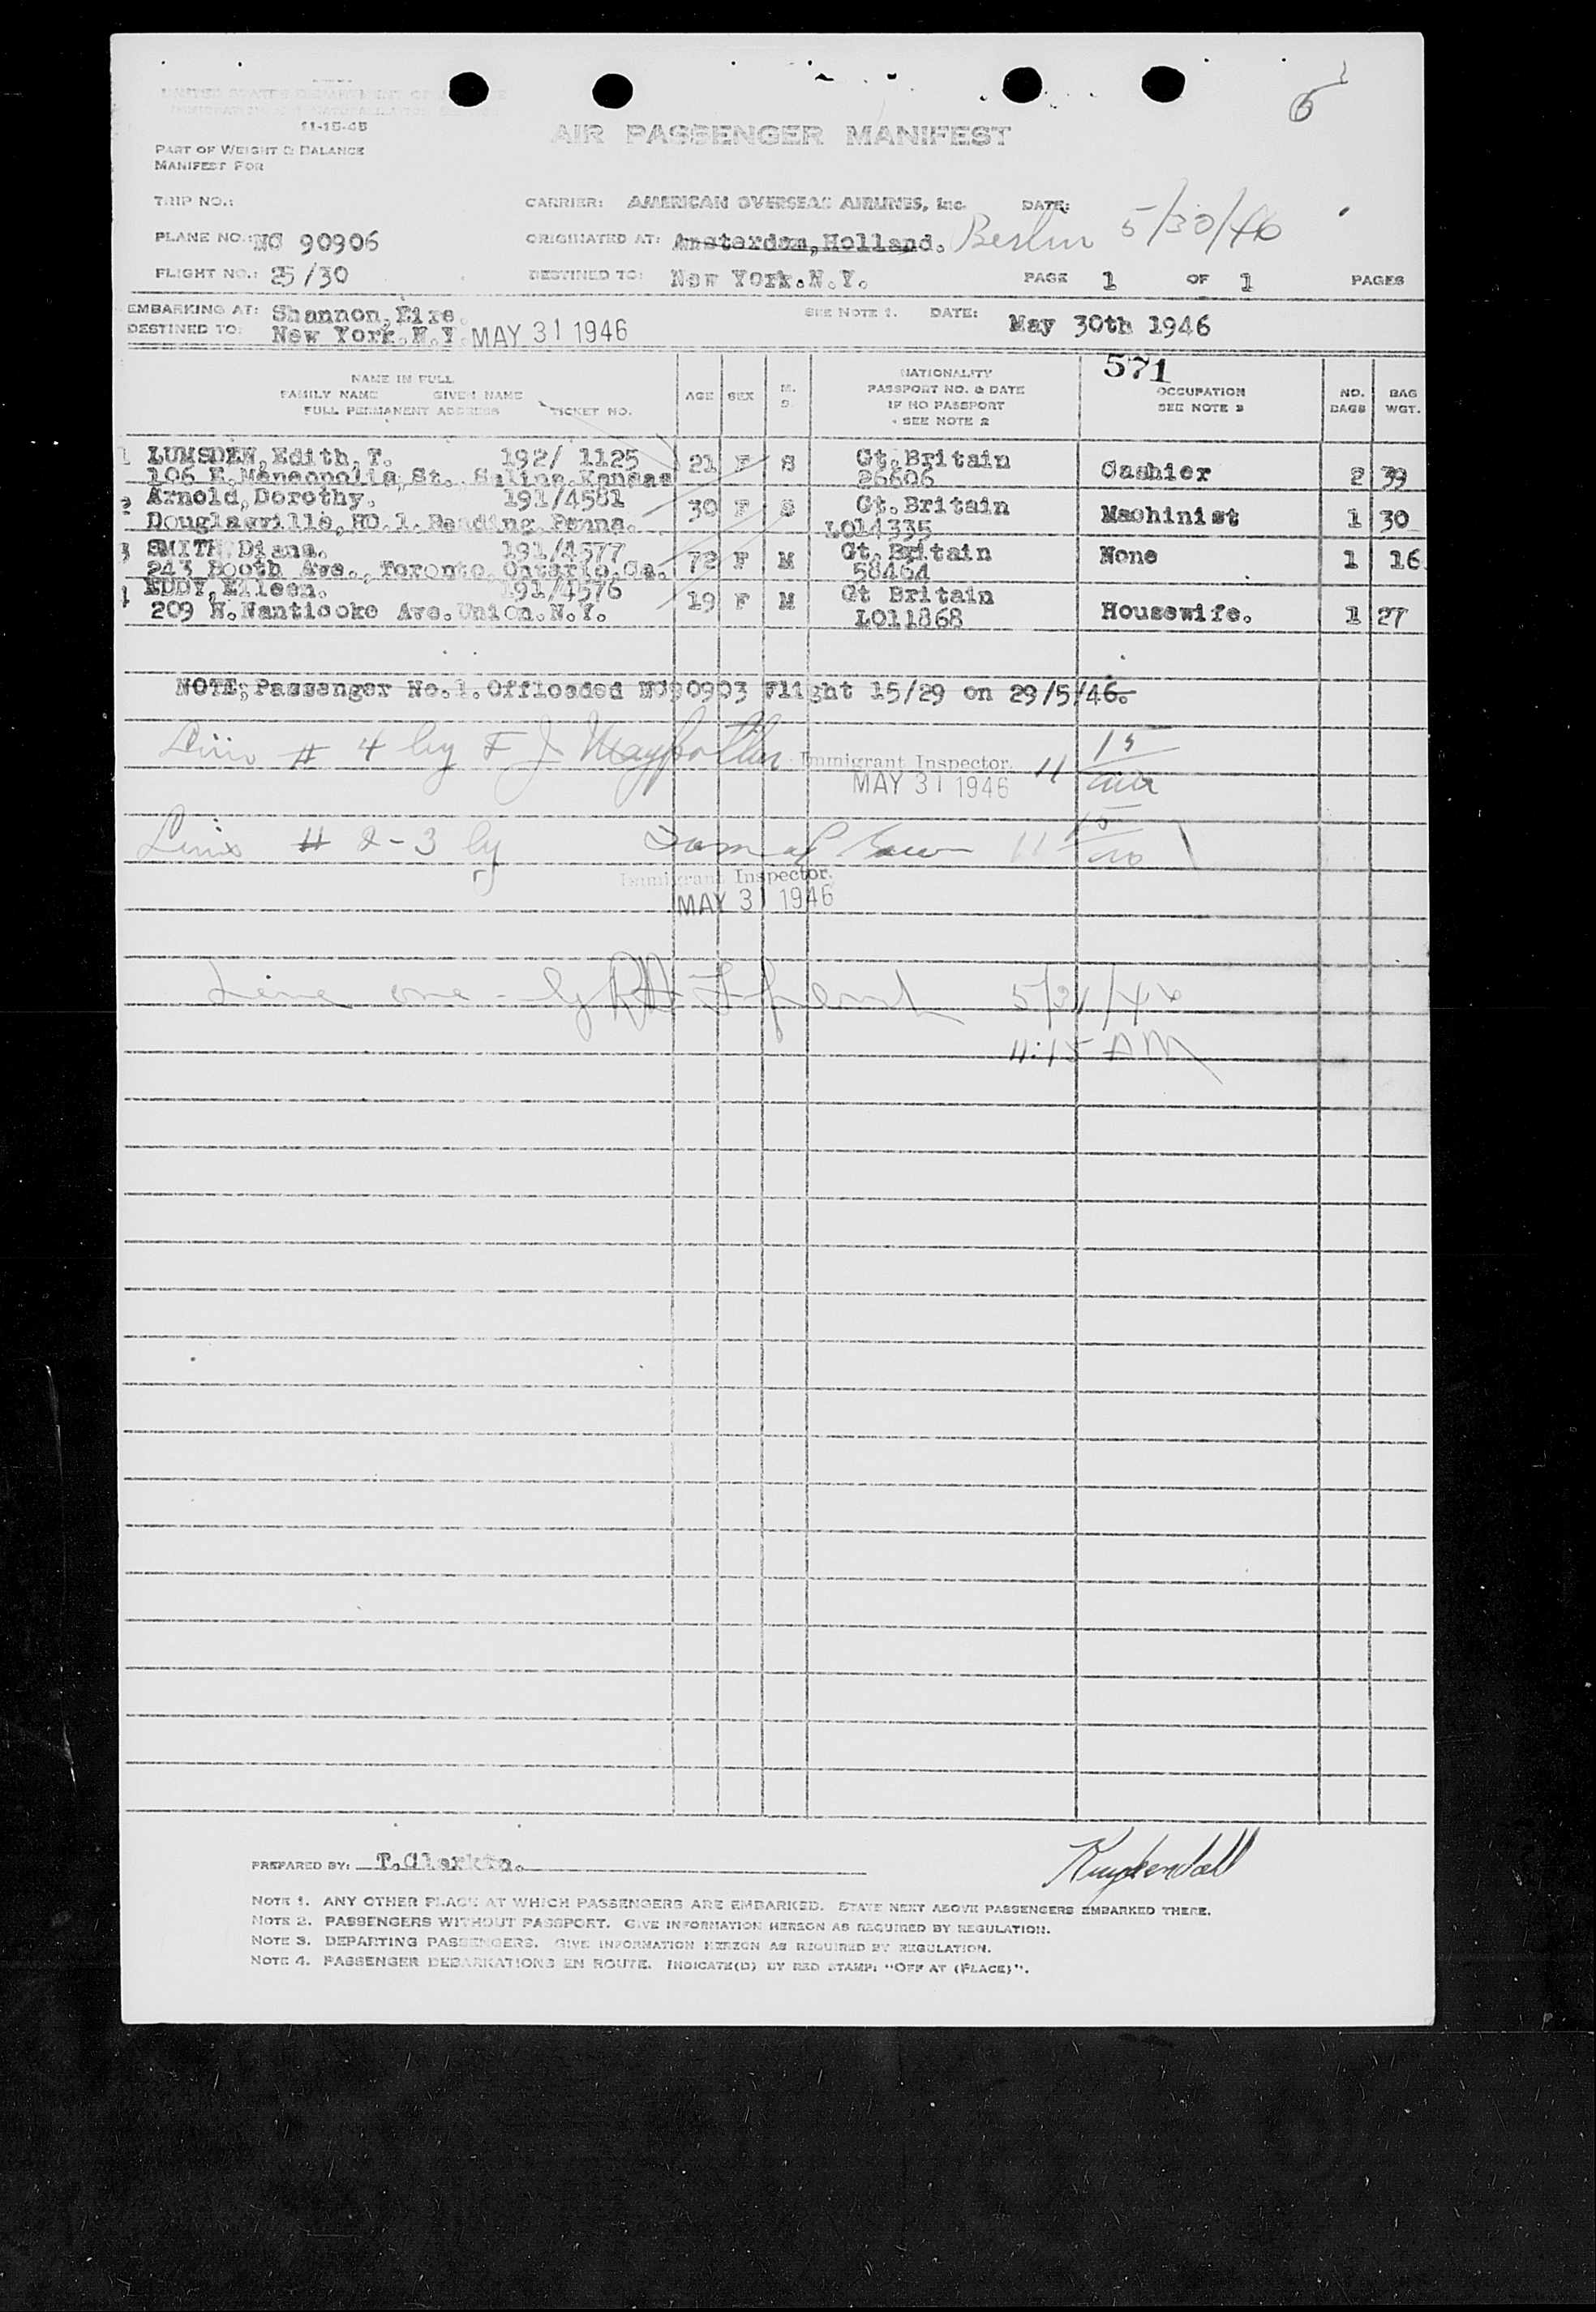 6
UNITED STATES DEPARTMENT OF JUSTICE
IMMIGRATION AND NATURALIZATION SERVICE
11-15-45
AIR PASSENGER MANIFEST
PART OF WEIGHT & BALANCE
MANIFEST FOR
TRIP NO.: CARRIER: AMERICAN OVERSEAS AIRLINES, Inc. DATE:
PLANE NO.: NC 90906 ORIGINATED AT: Amsterdam,Holland. Berlin 5/30/46
FLIGHT NO.: 25/30 DESTINED TO: New York.N.Y. PAGE 1 OF 1 PAGES
EMBARKING AT: Shannon,Eire. SEE NOTE 1. DATE: May 30th 1946
DESTINED TO: New York.N.Y. MAY 31 1946
571
NAME IN FULL
FAMILY NAME GIVEN NAME
FULL PERMANENT ADDRESS TICKET NO.
AGE SEX M. S.
NATIONALITY
PASSPORT NO. & DATE
IF NO PASSPORT
SEE NOTE 2
OCCUPATION
SEE NOTE 3
NO. BAGS
BAG WGT.
1 LUMSDEN,Edith,T. 192/ 1125 21 F S Gt.Britain Cashier 2 39
106 E.Meneopolis,St. Salina.Kansas 26606
2 Arnold,Dorothy. 191/4581 30 F S Gt.Britain Machinist 1 30
Douglasville,RD.1.Reading Penna. LO14335
3 SMITH Diana. 191/4577 72 F M Gt.Britain None 1 16
243 Booth Ave., Toronto Ontario.Ca. 58464
4 EDDY,Eileen. 191/4576 19 F M Gt Britain Housewife. 1 27
209 N.Nanticoke Ave.Union.N.Y. LO11868
NOTE; Passenger No.1.Offloaded NC90903 Flight 15/29 on 29/5/46.
Line # 4 by F J Immigrant Inspector. 11 15 am
MAY 31 1946
Line # 2-3 by 11 15
Immigrant Inspector.
MAY 31 1946
Line one - by 5/31/46
11:15 AM
PREPARED BY: T.Clarkin. Kuykendall
NOTE 1. ANY OTHER PLACE AT WHICH PASSENGERS ARE EMBARKED. STATE NEXT ABOVE PASSENGERS EMBARKED THERE.
NOTE 2. PASSENGERS WITHOUT PASSPORT. GIVE INFORMATION HEREON AS REQUIRED BY REGULATION.
NOTE 3. DEPARTING PASSENGERS. GIVE INFORMATION HEREON AS REQUIRED BY REGULATION.
NOTE 4. PASSENGER DEBARKATIONS EN ROUTE. INDICATE(D) BY RED STAMP: "OFF AT (PLACE)".